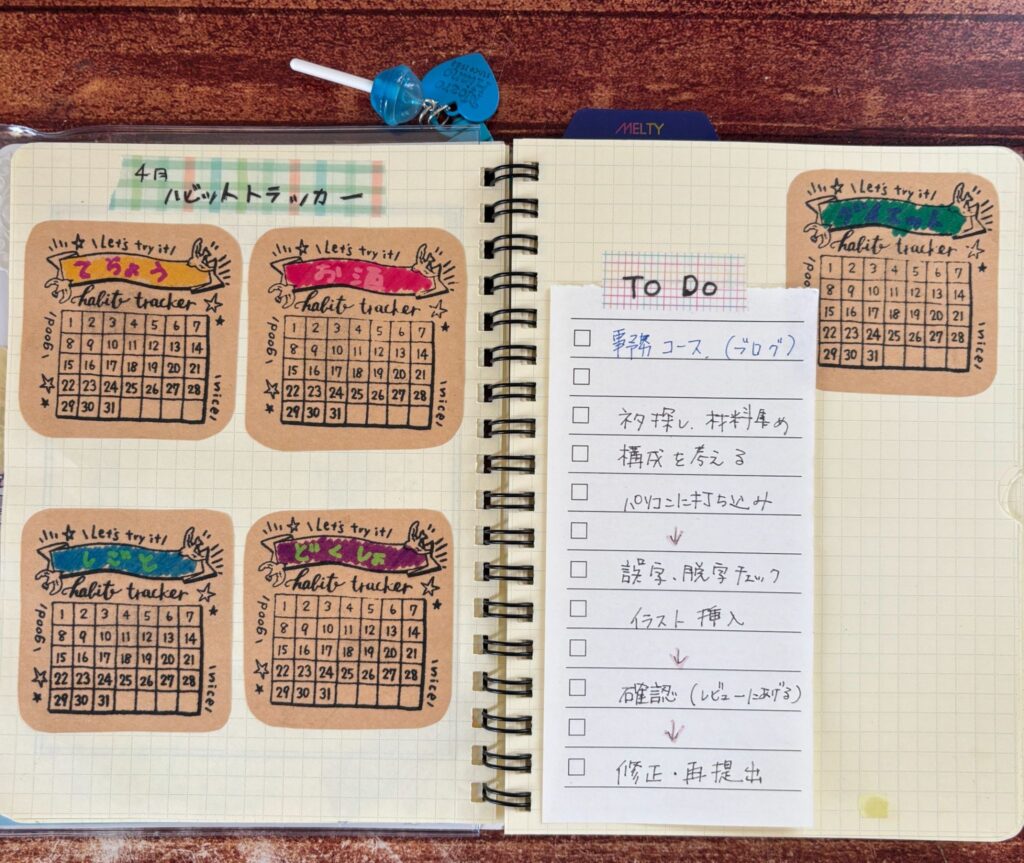 MELTY
4月
ハビットトラッカー
Let's try it!
てちょう
habit tracker
good!
nice!
1 2 3 4 5 6 7
8 9 10 11 12 13 14
15 16 17 18 19 20 21
22 23 24 25 26 27 28
29 30 31
Let's try it!
お酒
habit tracker
nice!
1 2 3 4 5 6 7
8 9 10 11 12 13 14
15 16 17 18 19 20 21
22 23 24 25 26 27 28
29 30 31
Let's try it!
しごと
habit tracker
good!
nice!
1 2 3 4 5 6 7
8 9 10 11 12 13 14
15 16 17 18 19 20 21
22 23 24 25 26 27 28
29 30 31
Let's try it!
どくしょ
habit tracker
good!
nice!
1 2 3 4 5 6 7
8 9 10 11 12 13 14
15 16 17 18 19 20 21
22 23 24 25 26 27 28
29 30 31
TO DO
コース.(ブログ)
ネタ探し、材料集め
構成を考える
パソコンに打ち込み
↓
誤字、脱字チェック
イラスト挿入
↓
確認(レビューにあげる)
↓
修正・再提出
Let's try it!
habit tracker
nice!
1 2 3 4 5 6 7
8 9 10 11 12 13 14
15 16 17 18 19 20 21
22 23 24 25 26 27 28
29 30 31